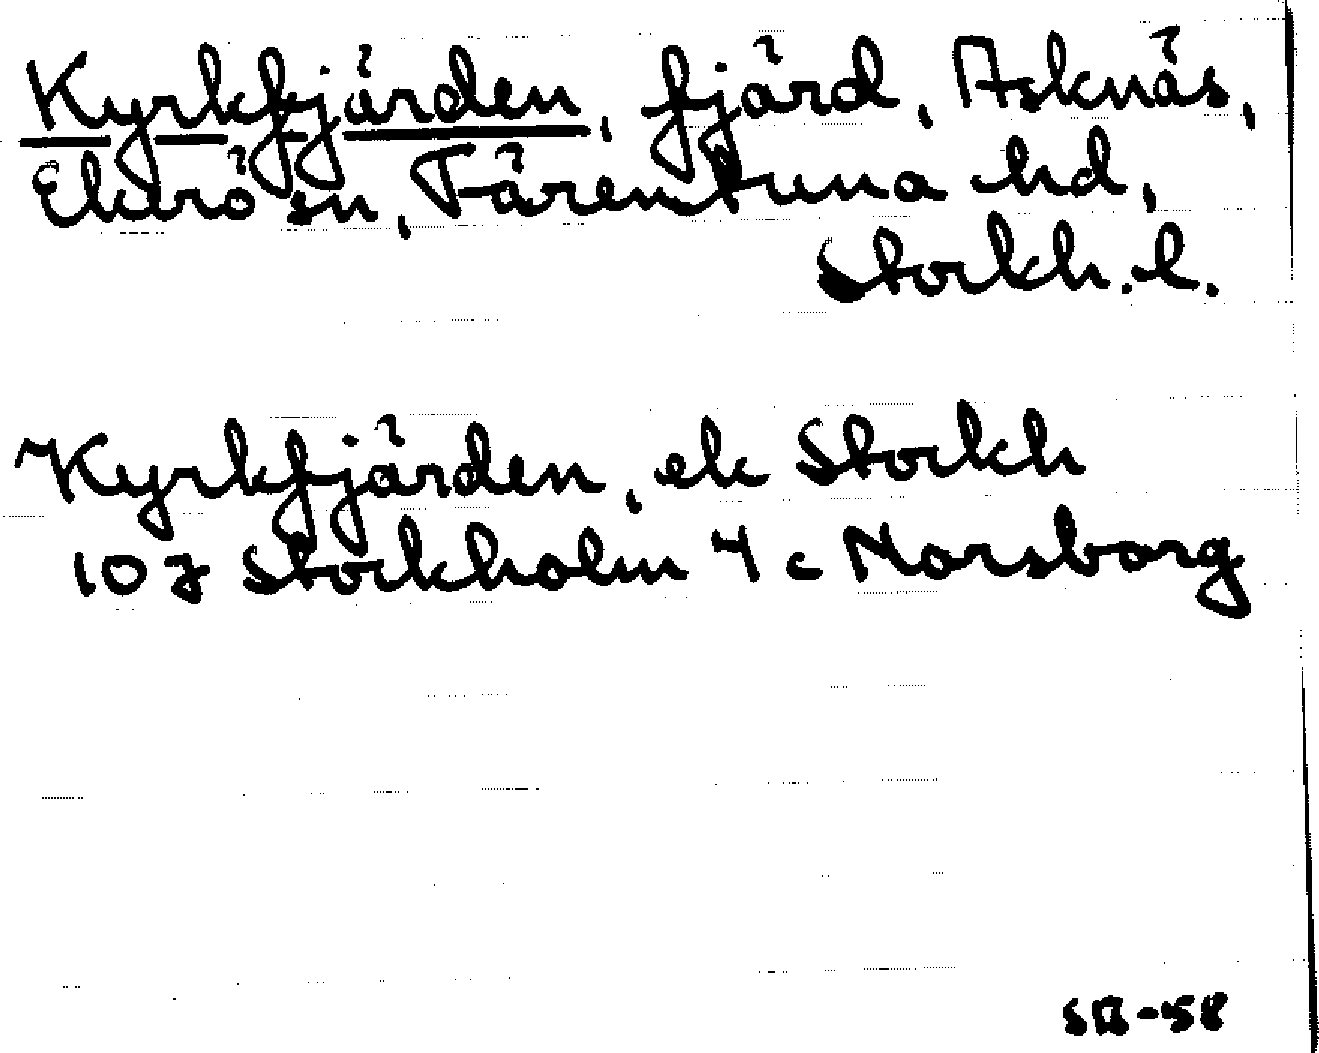 Kyrkfjärden, fjärd, Asknäs,
Ekerö sn, Färentuna hd,
Stockh. l.
Kyrkfjärden, ek Stockh
10J Stockholm 4 c Norsborg
SB-58